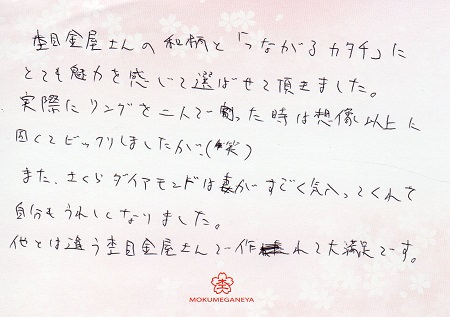 杢目金屋さんの和柄と「つながるカタチ」に
とても魅力を感じて選ばせて頂きました。
実際にリングを二人で割った時は想像以上に
固くてビックリしましたが、(笑)
また、さくらダイアモンドは妻がすごく気入ってくれて
自分もうれしくなりました。
他とは違う杢目金屋さんで作れて大満足です。
杢
MOKUMEGANEYA